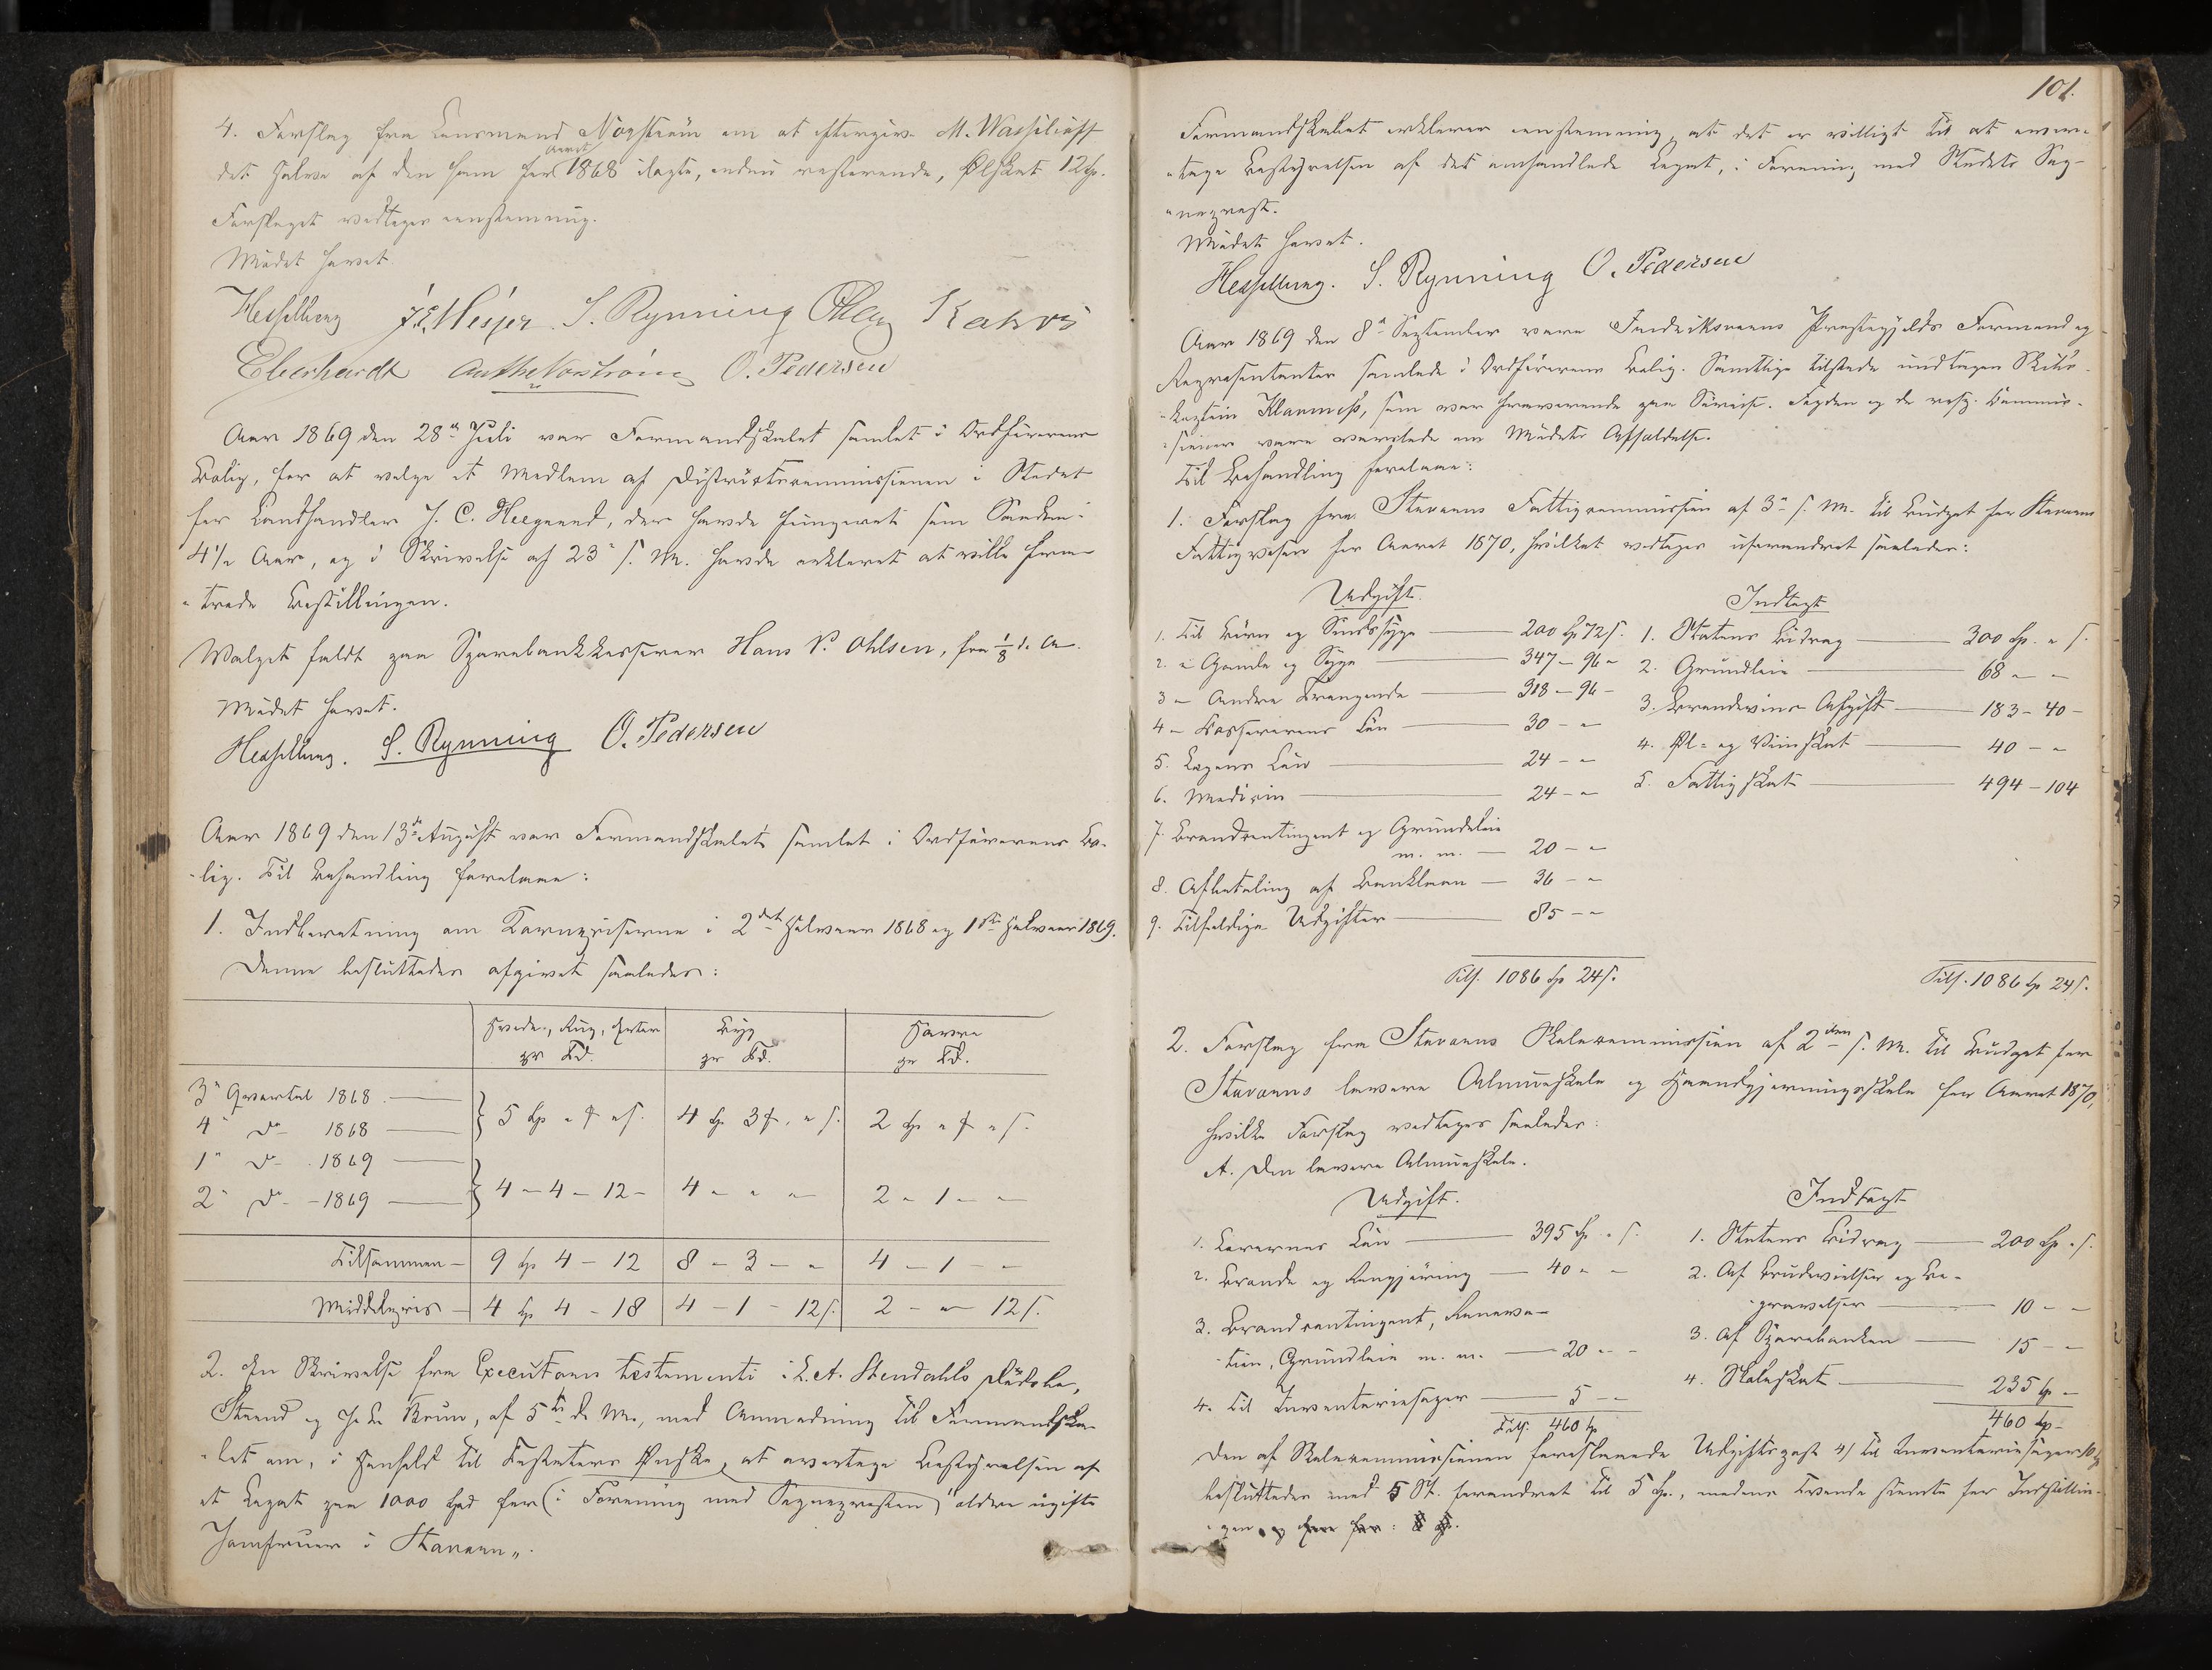 4. Forslag fra Lensmand Norstrøm om at eftergive M. Wassilioff
det Halve af den ham for Aaret 1868 ilagte, endnu resterende, Ølskat 12 Sp.
Forslaget vedtages eenstemmig.
Mødet hævet.
Hesselberg J. L. Wesper S. Rynning Kahrs
Eberhardt Anth. Norstrøm O. Pedersen
Aar 1869 den 28de Juli var Formandskabet samlet i Ordførerens
Bolig, for at vælge et Medlem af Districtscommissionen i Stedet
for Landhandler J. C. Heegaard, der havde fungeret som Saadan i
4½ Aar, og i Skrivelse af 23de s. M. havde erklæret at ville fra-
-træde Bestillingen.
Valget faldt paa Sparebankkasserer Hans P. Ohlsen, fra 1/8 d. A.
Mødet hævet.
Hesselberg. S. Rynning O. Pedersen
Aar 1869 den 13de August var Formandskabet samlet i Ordførerens Bo-
-lig. Til Behandling forelaae:
1. Indberetning om Kornpriserne i 2det Halvaar 1868 og 1ste Halvaar 1869.
Denne besluttedes afgivet saaledes:
Hvede, Rug, Erter pr Td. Byg pr Td. Havre pr Td.
3de Qvartal 1868
4de do 1868 } 5 Sp " ƒ " s. 4 Sp. 3 ƒ. " s. 2 Sp " ƒ " s.
1ste do 1869
2det do - 1869 } 4 - 4 - 12 - 4 - " - " 2 - 1 - "
Tilsammen - 9 Sp 4 - 12 8 - 3 - " 4 - 1 - "
Middelpris - 4 Sp 4 - 18 4 - 1 - 12 s. 2 - " - 12 s.
2. En Skrivelse fra Executores testamenti i L. A. Stendahls Dødsbo,
Strand og J. de Brun, af 5te d. M., med Anmodning til Formandska-
-bet om, i Henhold til Testators Ønske, at overtage Bestyrelsen af
et Legat paa 1000 Spd for (i Forening med Sognepresten) "ældre ugifte
Jomfruer i Stavern".
101.
Formandskabet erklærer eenstemmig, at det er villigt til at over-
-tage Bestyrelsen af det omhandlede Legat, i Forening med Stedets Sog-
-neprest.
Mødet hævet.
Hesselberg. S. Rynning O. Pedersen
Aar 1869 den 8de September vare Fredriksværns Præstegjelds Formænd og
Repræsentanter samlede i Ordførerens Bolig. Samtlige tilstede undtagen Skibs-
-kaptein Klarmess, som var fraværende paa Søreise. Fogden og de resp. Commis-
-sioner vare varslede om Mødets Afholdelse.
Til Behandling forelaae:
1. Forslag fra Staverns Fattigcommission af 3de s. M. til Budget for Staverns
Fattigvæsen for Aaret 1870, hvilket vedtages uforandret saaledes:
Udgift. Indtægt
1. Til Børn og Sindssyge 200 Sp 72 s. 1. Statens Bidrag 300 Sp. " s.
2. " Gamle og Syge 347 - 96 - 2. Grundleie 68 - "
3 - Andre Trængende 318 - 96 - 3. Brændeviins Afgift 183 - 40 -
4 - Kassererens Løn 30 - " 4. Øl- og Viinskat 40 - "
5. Lægens Løn 24 - " 5. Fattigskat 494 - 104
6. Medicin 24 - "
7. Brandcontingent og Grundeleie
m. m. 20 - "
8. Afbetaling af Banklaan 36 - "
9. Tilfældige Udgifter 85 - "
Tils. 1086 Sp 24 s. Tils. 1086 Sp 24 s.
2. Forslag fra Staverns Skolecommission af 2den s. M. til Budget for
Staverns lavere Almueskole og Haandgjerningsskole for Aaret 1870,
hvilke Forslag vedtages saaledes:
A. Den lavere Almueskole.
Udgift. Indtægt
1. Lærernes Løn 395 Sp. " s. 1. Statens Bidrag 200 Sp. " s.
2. Brænde og Rengjøring 40 - " 2. Af Brudevielser og Be-
-gravelser 10 - "
3. Brandcontingent, Renova-
-tion, Grundleie m. m. 20 - " 3. Af Sparebanken 15 - "
4. Til Inventariesager 5 - " 4. Skoleskat 235 Sp -
Tils. 460 Sp 460 Sp -
Den af Skolecommissionen foreslaaede Udgiftspost 4) til Inventariesager 10 Sp
besluttedes med 5 St. forandret til 5 Sp., medens Tvende stemte for Indstillin-
-gen